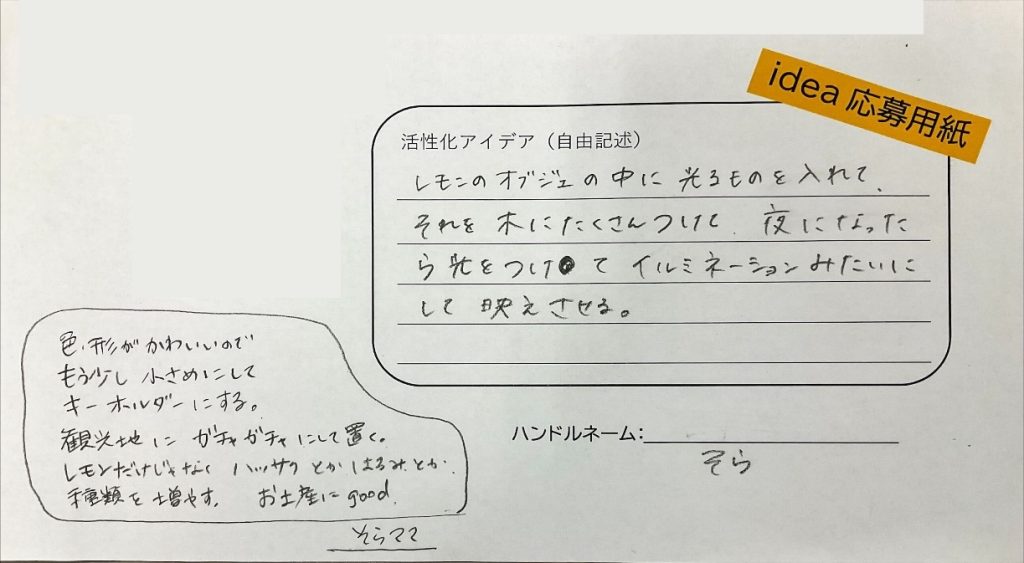 idea 応募用紙
活性化アイデア（自由記述）
レモンのオブジェの中に光るものを入れて、
それを木にたくさんつけて、夜になった
ら光をつけて イルミネーションみたいに
して映えさせる。
ハンドルネーム：
そら
色・形がかわいいので
もう少し小さめにして
キーホルダーにする。
観光地に ガチャガチャにして置く。
レモンだけじゃなく ハッサクとかはるみとか、
種類を増やす。 お土産に good.
そらママ